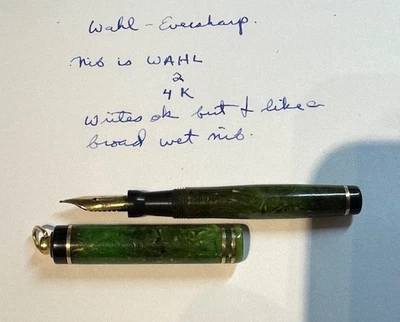 Wahl-Eversharp.
Nib is WAHL
2
4K
Writes ok but I like a
broad wet nib.